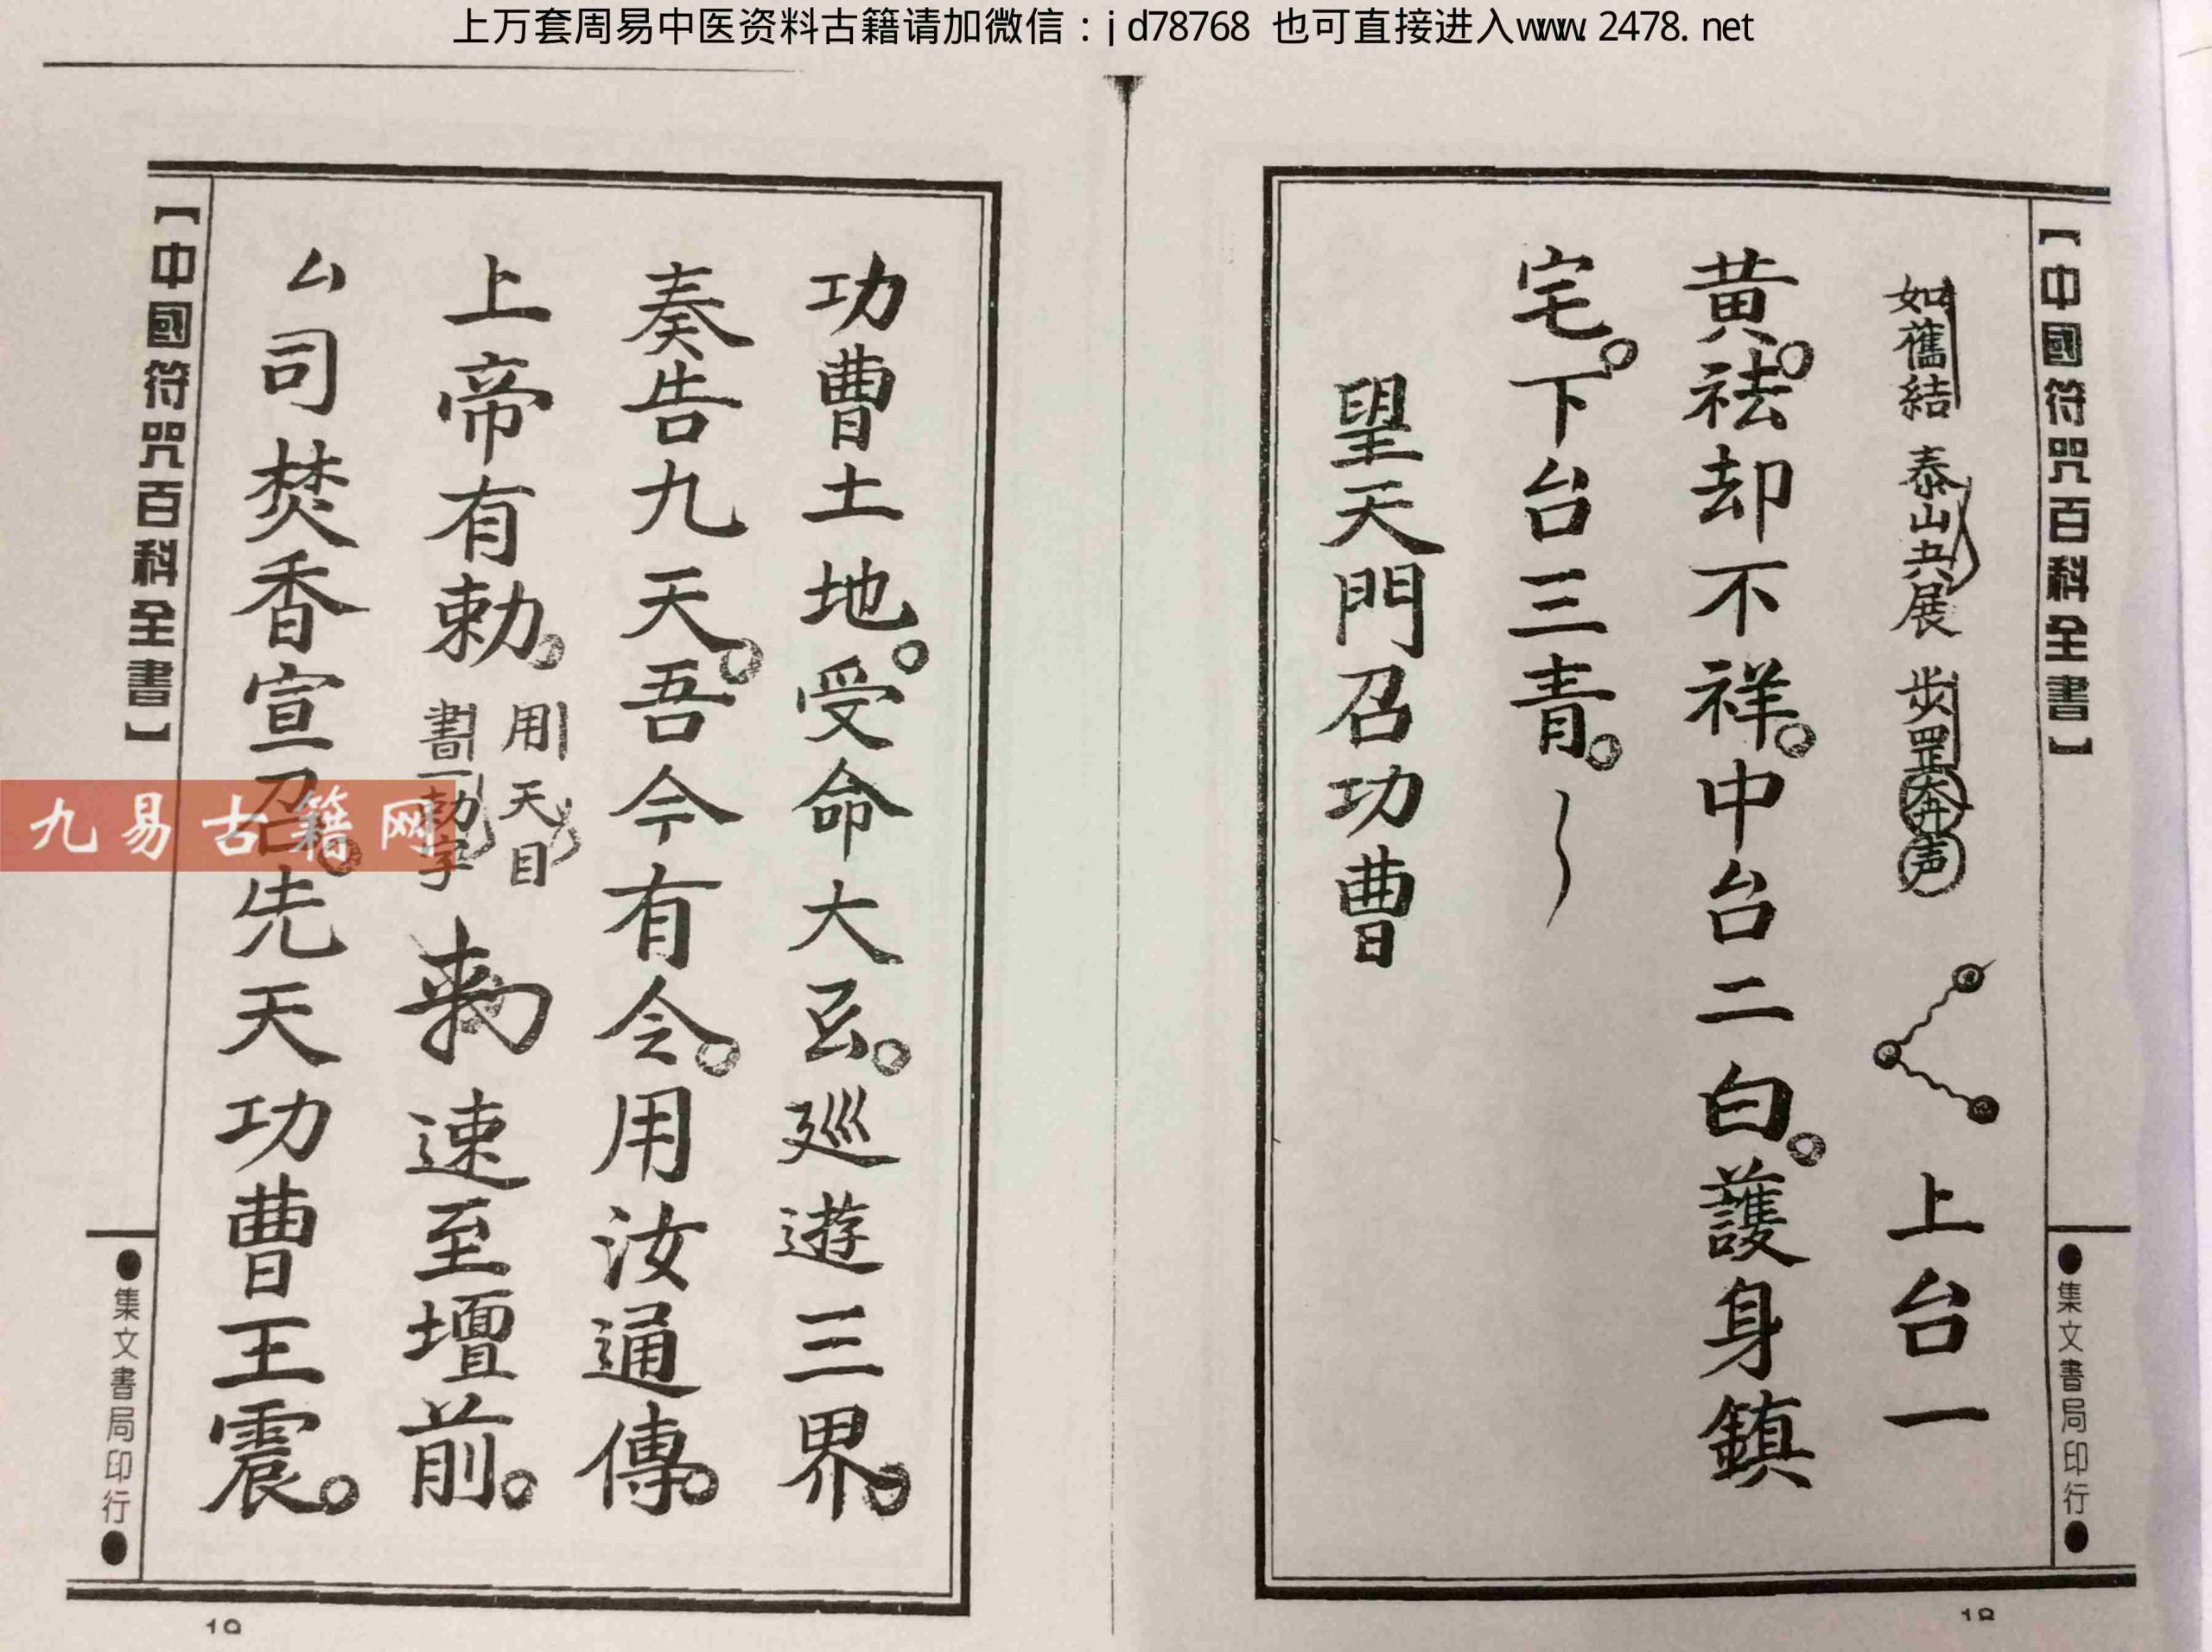 上万套周易中医资料古籍请加微信：jd78768 也可直接进入www.2478.net
【中國符咒百科全書】
●集文書局印行●
如舊結 泰山共展 步罡奔声 上台一
黃。祛却不祥。中台二白。護身鎮
宅。下台三青。
望天門召功曹
18
功曹土地。受命大玄。廵遊三界。
奏告九天。吾今有令。用汝通傳。
上帝有勅。
用天目
書一勅字
勅速至壇前。
ム司焚香宣召。先天功曹王震。
【中國符咒百科全書】
●集文書局印行●
19
九易古籍网